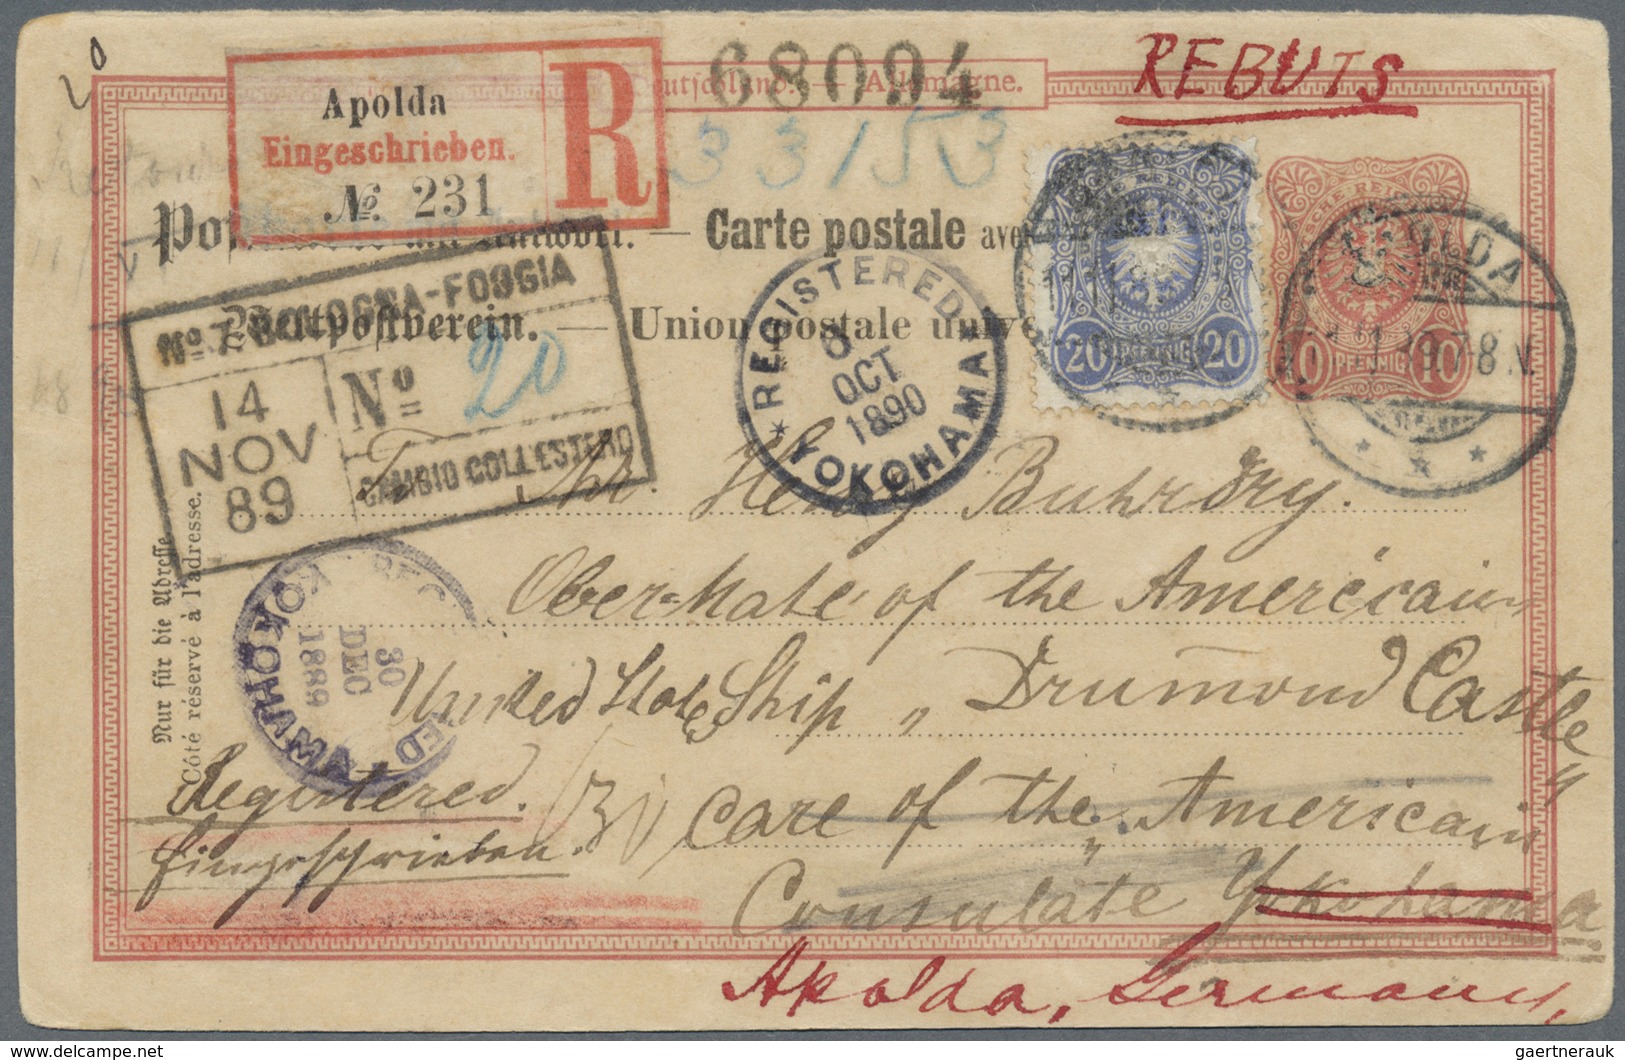 20
Apolda
Eingeschrieben.
№ 231
R
68094
Deutschland. — Allemagne.
REBUTS
33153
Carte postale avec
Weltpostverein. — Union postale unive
BOLOGNA-FOGGIA
14
NOV
89
Nº
20
CAMBIO COLL'ESTERO
REGISTERED
8
OCT
1890
YOKOHAMA
20 PFENNIG 20
10 PFENNIG 10
APOLDA
7-8 N.
REGISTERED
30
DEC
1889
YOKOHAMA
Nur für die Adresse
Côté réservé à l'adresse.
Mr. Henry Buhrdry.
Ober-Mate of the American
United State Ship „Drumond Castle"
Registered.
Eingeschrieben.
care of the American
Consulate Yokohama
Apolda, Germany,
gaertnerauk @ delcampe.net